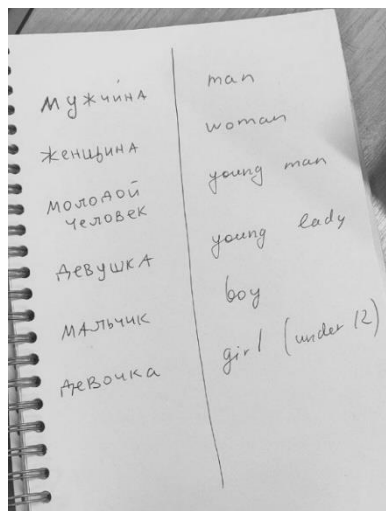 мужчина
женщина
молодой
человек
девушка
мальчик
девочка
man
woman
young man
young lady
boy
girl (under 12)